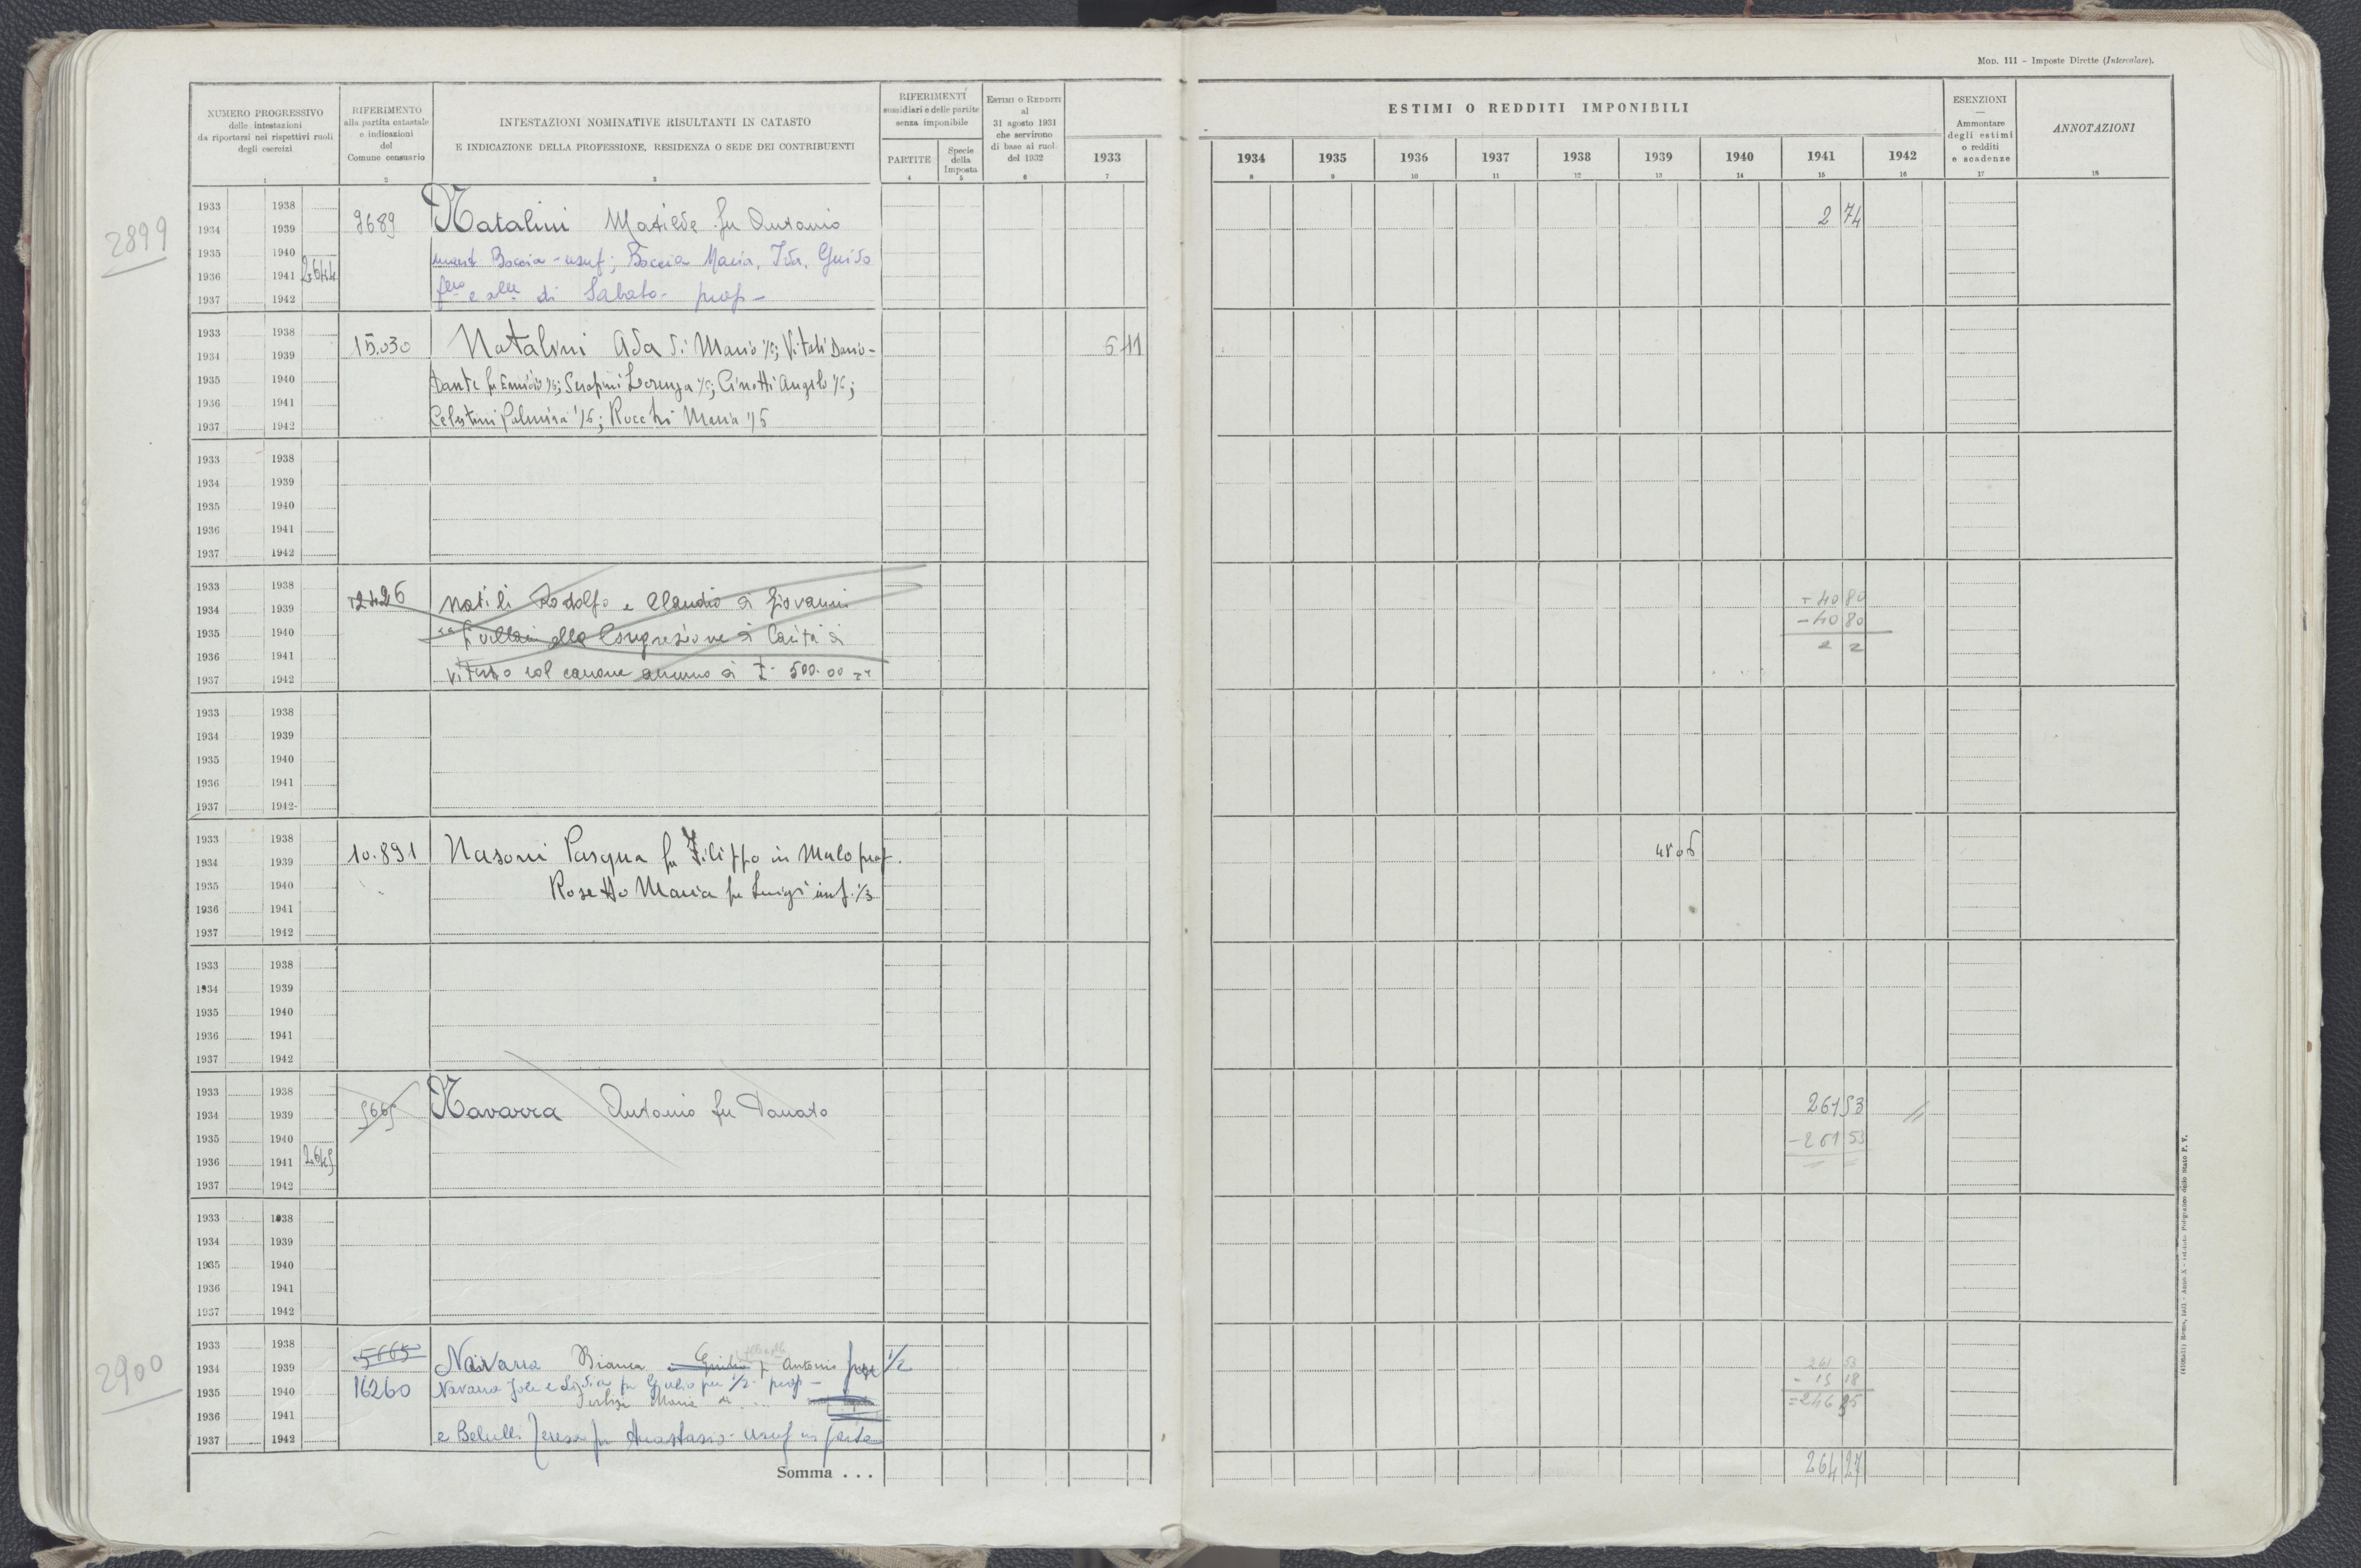 Mod. 111 - Imposte Dirette (Intercalare).
NUMERO PROGRESSIVO
delle intestazioni
da riportarsi nei rispettivi ruoli
degli esercizi
1
RIFERIMENTO
alla partita catastale
e indicazioni
del
Comune censuario
2
INTESTAZIONI NOMINATIVE RISULTANTI IN CATASTO
E INDICAZIONE DELLA PROFESSIONE, RESIDENZA O SEDE DEI CONTRIBUENTI
3
RIFERIMENTI
sussidiari e delle partite
senza imponibile
PARTITE
4
Specie
della
Imposta
5
Estimi o Redditi
al
31 agosto 1931
che servirono
di base ai ruoli
del 1932
6
1933
7
ESTIMI O REDDITI IMPONIBILI
1934 1935 1936 1937 1938 1939 1940 1941 1942
8 9 10 11 12 13 14 15 16
ESENZIONI
Ammontare
degli estimi
o redditi
e scadenze
17
ANNOTAZIONI
18
2899
1933 1938
1934 1939 9689 Natalini Matilde fu Antonio 2 74
1935 1940 Boccia - usuf; Boccia Maria, Ida, Guido
1936 1941 2644
1937 1942 di Sabato - prop -
1933 1938
1934 1939 15.030 Natalini Ada di Mario 1/5; Vitali Dario - 5 11
1935 1940 Dante fu 1/5; Serafini Lorenza 1/5; Cinotti Angelo 1/5;
1936 1941
1937 1942 Celestini Palmira 1/5; Rocchi Maria 1/5
1933 1938
1934 1939
1935 1940
1936 1941
1937 1942
1933 1938
1934 1939 12426 Natili Rodolfo e Claudio di Giovanni + 40 80
1935 1940 alla Congregazione di Carità di - 40 80
1936 1941
1937 1942 Viterbo col canone annuo di £ 500.00
1933 1938
1934 1939
1935 1940
1936 1941
1937 1942
1933 1938
1934 1939 10.891 Nasoni Pasqua fu Filippo in Malo prop.
1935 1940 Rosetto Maria fu Luigi usuf. 1/3
1936 1941
1937 1942
1933 1938
1934 1939
1935 1940
1936 1941
1937 1942
1933 1938
1934 1939 5665 Navarra Antonio fu Donato 261 53 //
1935 1940 - 261 53
1936 1941 2645
1937 1942
1933 1938
1934 1939
1935 1940
1936 1941
1937 1942
2900
1933 1938 5665
1934 1939 Navarra Bianca fu Antonio per 1/2 261 53
1935 1940 16260 Navarra Jole e Lidia fu Giulio per 1/2 prop - - 15 18
1936 1941 Maria di = 246 35
1937 1942 e Belulli Teresa fu Anastasio - usuf in parte
Somma . . . 264 27